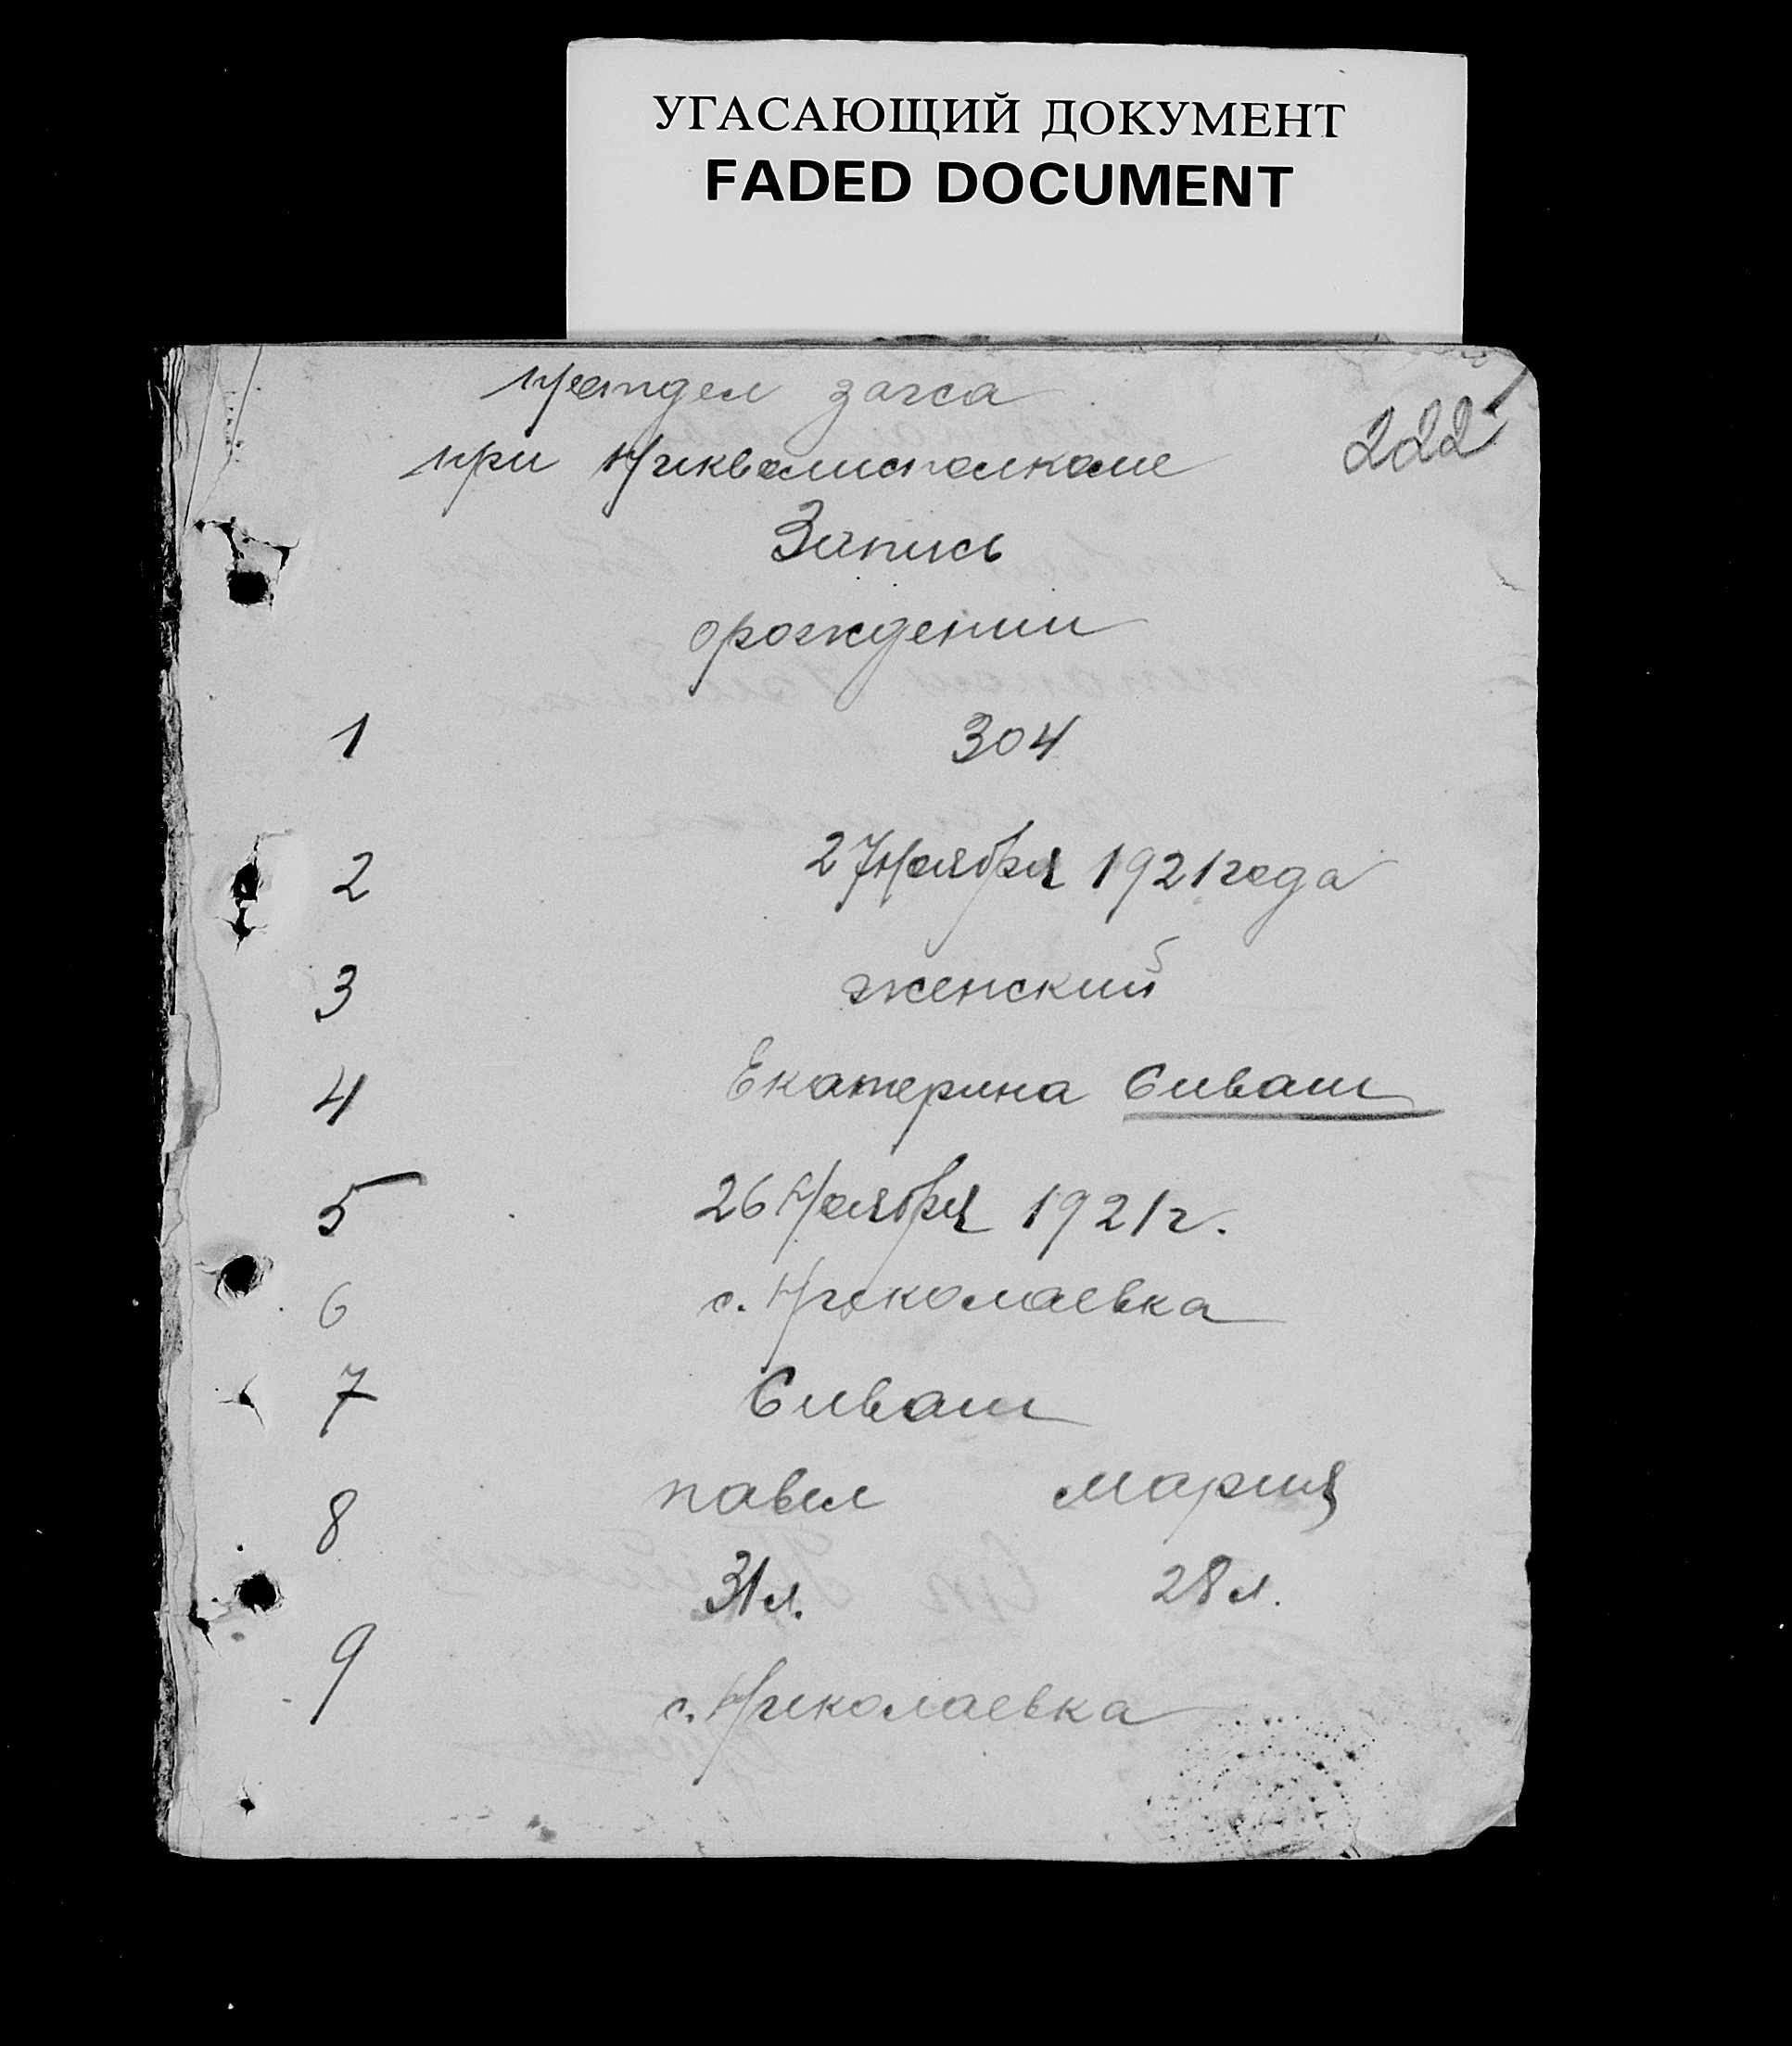 УГАСАЮЩИЙ ДОКУМЕНТ
FADED DOCUMENT
загса
222
при Никволисполкоме
Запись
о рождении
1 304
2 27 Ноября 1921 года
3 женский
4 Екатерина Сиваш
5 26 Ноября 1921 г.
6 с. Николаевка
7 Сиваш
8 павел мария
31 л. 28 л.
9 с. Николаевка